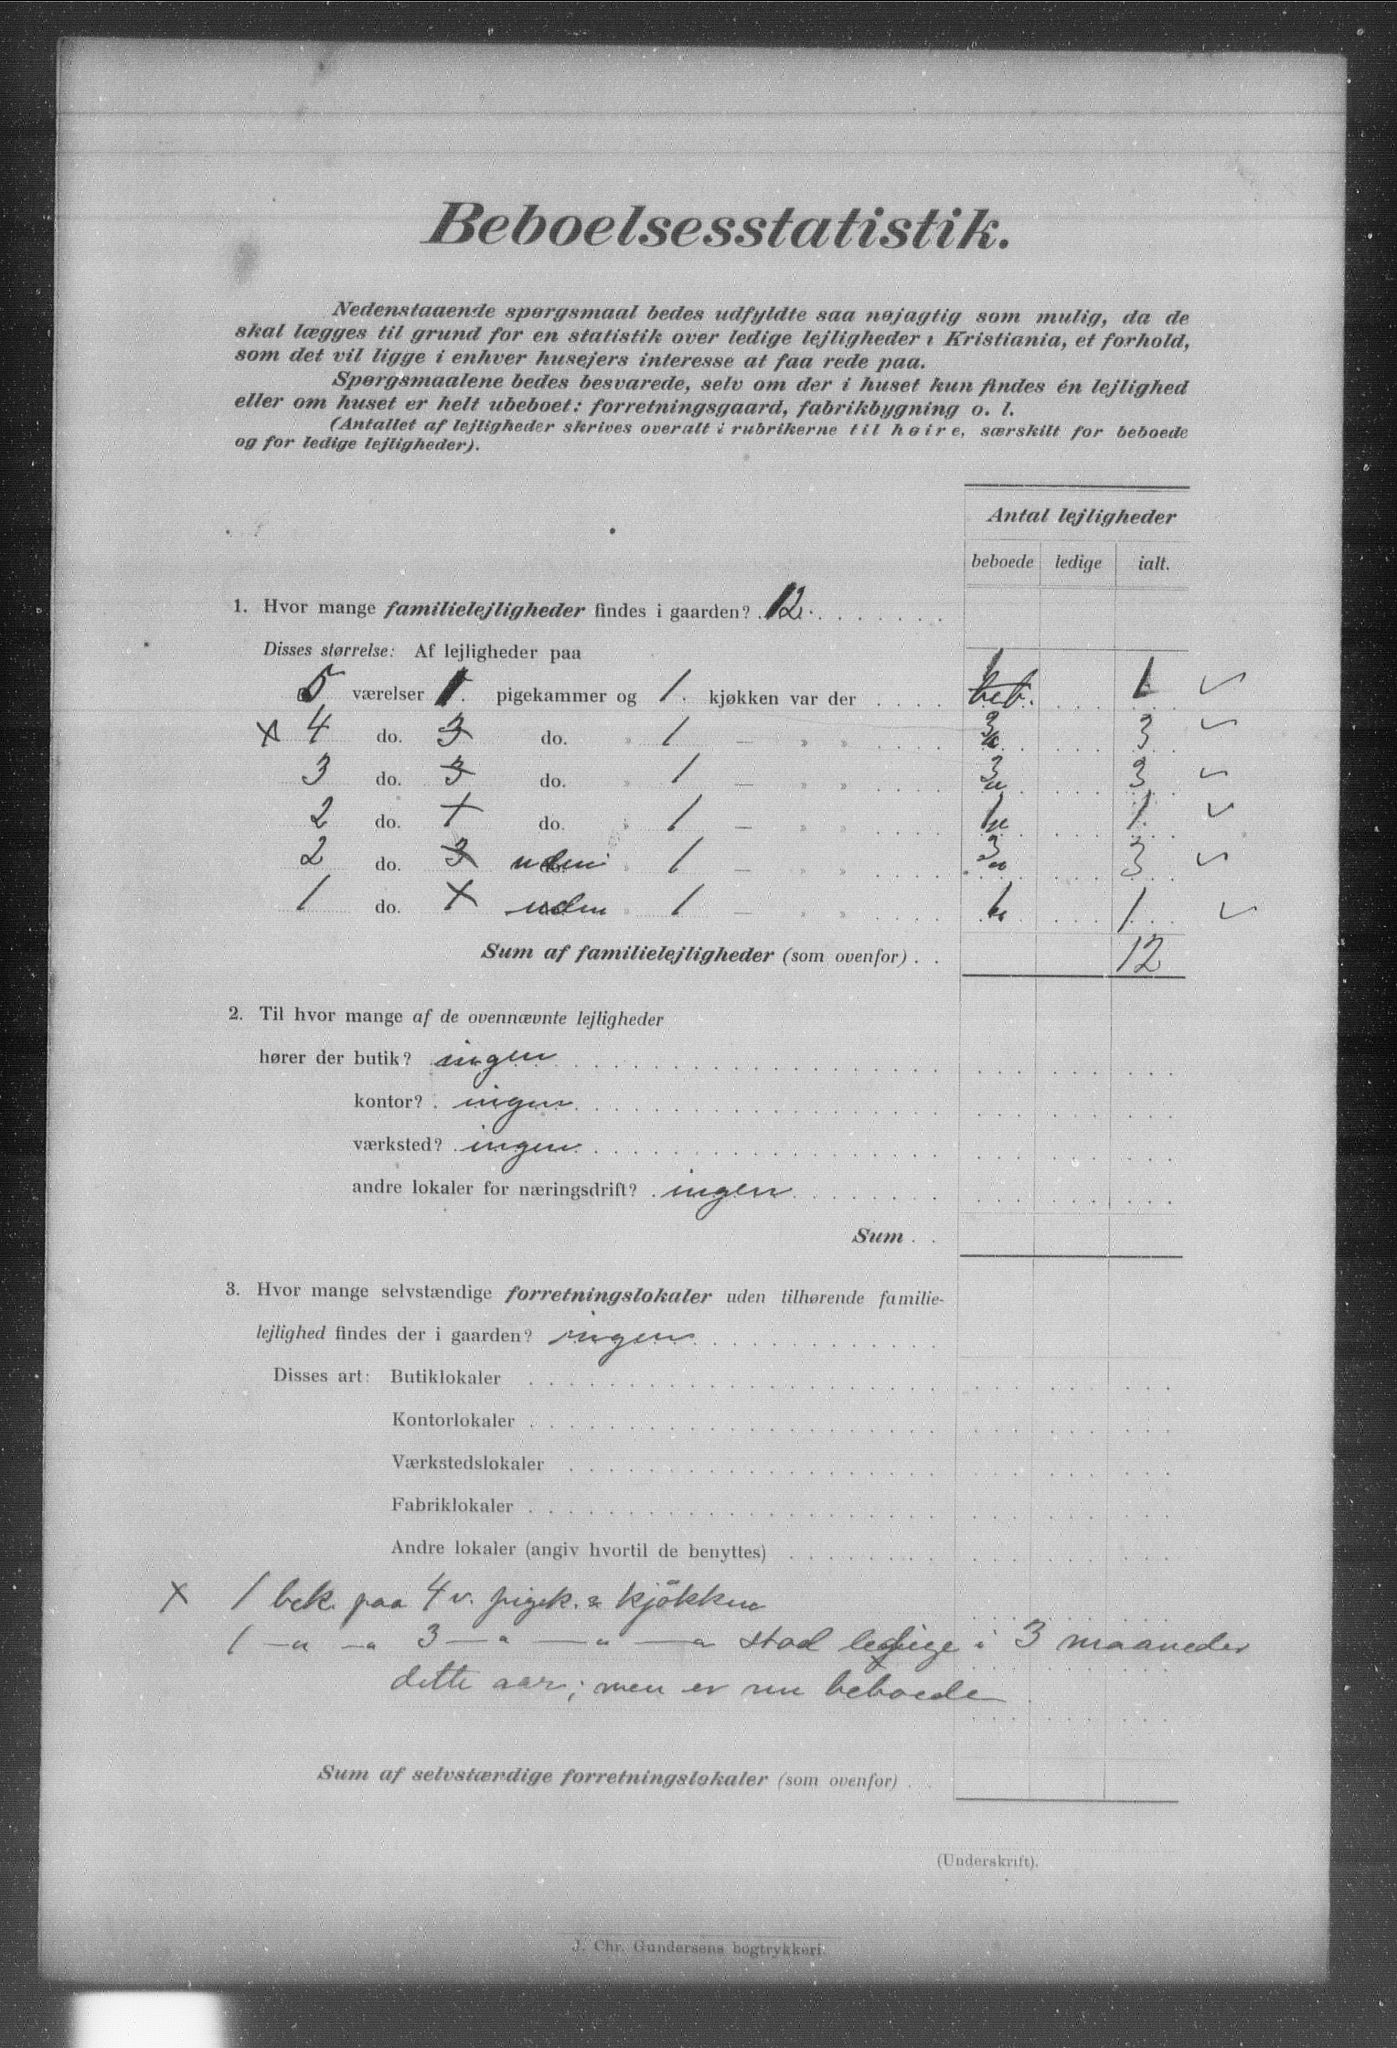 Beboelsesstatistik.
Nedenstaaende spørgsmaal bedes udfyldte saa nøjagtig som mulig, da de
skal lægges til grund for en statistik over ledige lejligheder i Kristiania, et forhold,
som det vil ligge i enhver husejers interesse at faa rede paa.
Spørgsmaalene bedes besvarede, selv om der i huset kun findes én lejlighed
eller om huset er helt ubeboet: forretningsgaard, fabrikbygning o. l.
(Antallet af lejligheder skrives overalt i rubrikerne til høire, særskilt for beboede
og for ledige lejligheder).
Antal lejligheder
beboede ledige ialt.
1. Hvor mange familielejligheder findes i gaarden? 12
Disses størrelse: Af lejligheder paa
5 værelser 1 pigekammer og 1 kjøkken var der 1 beb. 1 ✓
x 4 do. 3 do. » 1 — » » 3 " 3 ✓
3 do. 3 do. » 1 — » » 3 " 3 ✓
2 do. 1 do. » 1 — » » 1 " 1 ✓
2 do. 3 uden do. » 1 — » » 3 " 3 ✓
1 do. 1 uden » 1 — » » 1 " 1 ✓
Sum af familielejligheder (som ovenfor) . . 12
2. Til hvor mange af de ovennævnte lejligheder
hører der butik? ingen
kontor? ingen
værksted? ingen
andre lokaler for næringsdrift? ingen
Sum . .
3. Hvor mange selvstændige forretningslokaler uden tilhørende familie-
lejlighed findes der i gaarden? ingen
Disses art: Butiklokaler
Kontorlokaler
Værkstedslokaler
Fabriklokaler
Andre lokaler (angiv hvortil de benyttes)
x 1 bek. paa 4 v. pigek. & kjökken
1 — " — " 3 — " — " — " stod ledige i 3 maaneder
dette aar; men er nu beboede
Sum af selvstændige forretningslokaler (som ovenfor) . .
(Underskrift).
J. Chr. Gundersens bogtrykkeri.